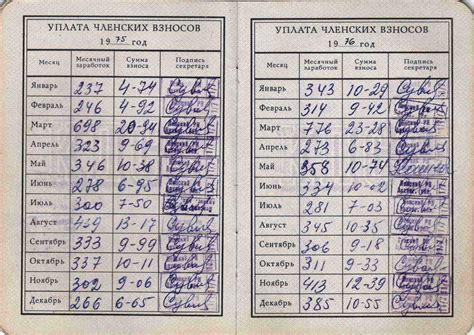 УПЛАТА ЧЛЕНСКИХ ВЗНОСОВ
1975 год
Месяц Месячный заработок Сумма взноса Подпись секретаря
Январь 237 4-74
Февраль 246 4-92
Март 698 20-94
Апрель 323 9-69
Май 346 10-38
Июнь 278 6-95
Июль 300 7-50
Август 439 13-17
Сентябрь 333 9-99
Октябрь 337 10-11
Ноябрь 302 9-06
Декабрь 266 6-65
УПЛАТА ЧЛЕНСКИХ ВЗНОСОВ
1976 год
Месяц Месячный заработок Сумма взноса Подпись секретаря
Январь 343 10-29
Февраль 314 9-42
Март 776 23-28
Апрель 273 6-83
Май 358 10-74
Июнь 334 10-02
Июль 281 7-03
Август 345 10-35
Сентябрь 306 9-18
Октябрь 311 9-33
Ноябрь 413 12-39
Декабрь 385 10-55